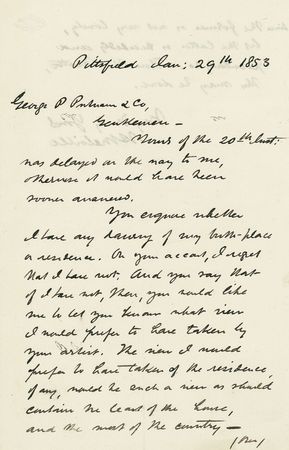 Pittsfield Jan: 29th 1853
George P Putnam & Co,
Gentlemen —
Yours of the 20th Inst:
was delayed on the way to me,
otherwise it would have been
sooner answered.
You enquire whether
I have any drawing of my birth-place
or residence. On your account, I regret
that I have not. And you say that
if I have not, then, you would like
me to let you know what view
I would prefer to have taken by
your artist. The view I would
prefer to have taken of the residence,
if any, would be such a view as should
contain the least of the house,
and the most of the country —
(over)